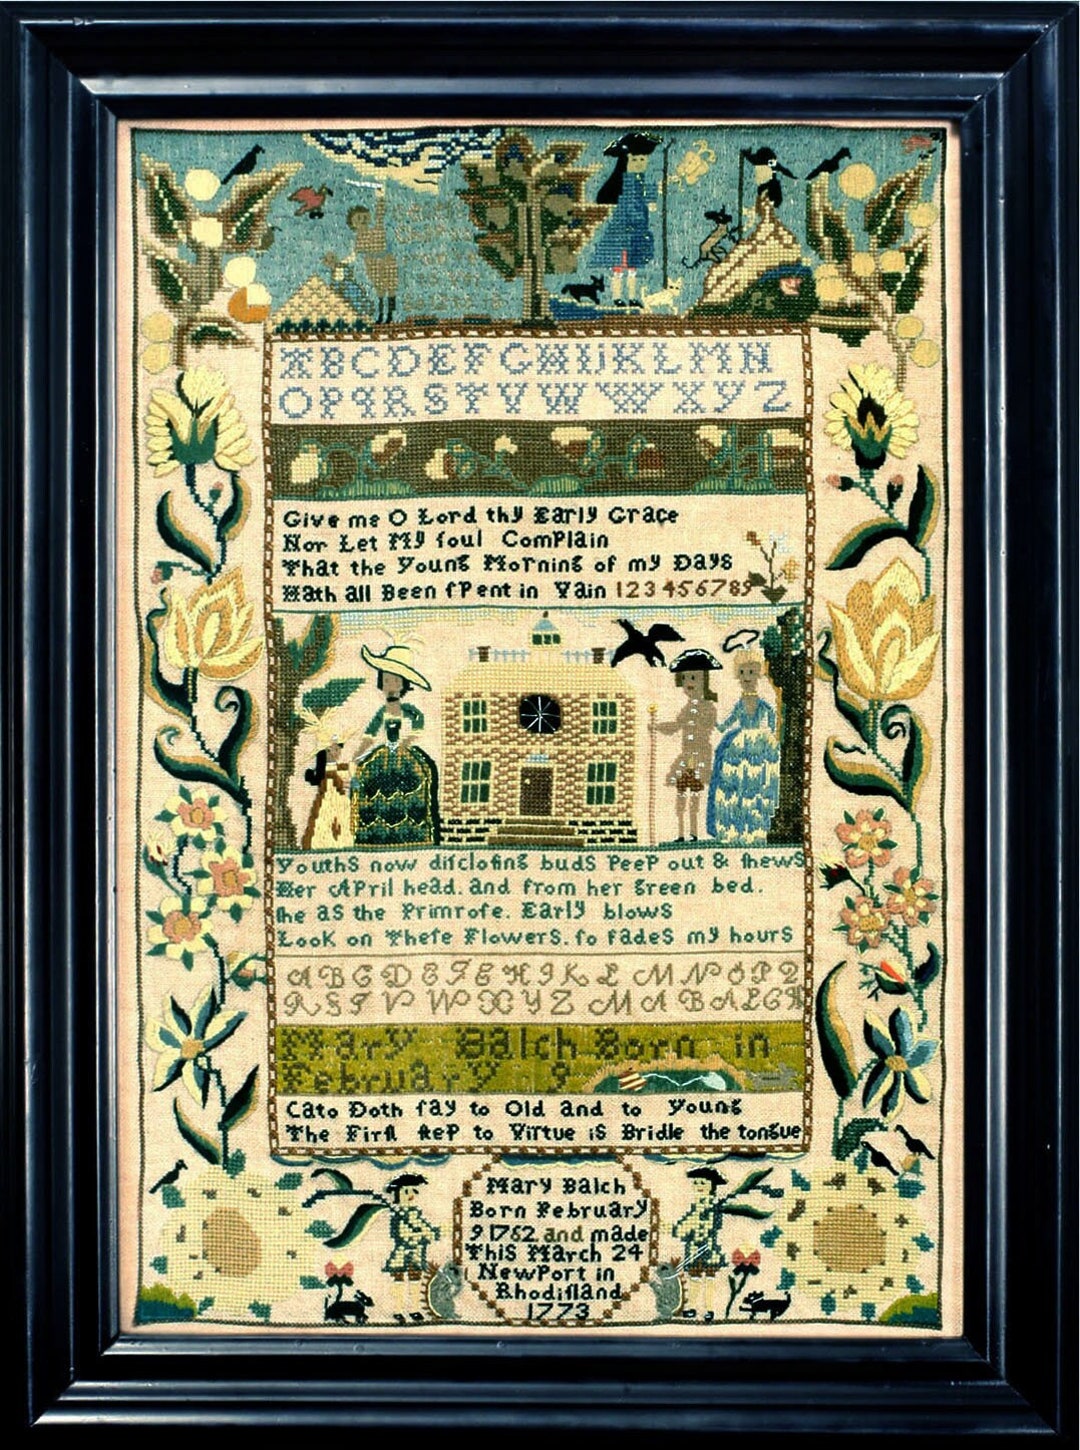 ABCDEFGHIJKLMN
OPQRSTVWWXYZ
Give me O Lord thy Early Grace
Nor Let My ſoul Complain
That the Young Morning of my Days
Hath all Been ſPent in Vain 123456789
Youths now diſcloſing buds Peep out & ſhews
Her April head. and from her green bed.
ſhe as the Primroſe. Early blows
Look on Theſe Flowers. ſo fades my hours
ABCDEFGHIKLMNOPQ
RSTVWXYZ MABALCH
Mary Balch Born in
February 9
Cato Doth ſay to Old and to Young
The Firſt ſteP to Virtue is Bridle the tongue
Mary Balch
Born February
9 1762 and made
This March 24
NewPort in
Rhodiſland
1773